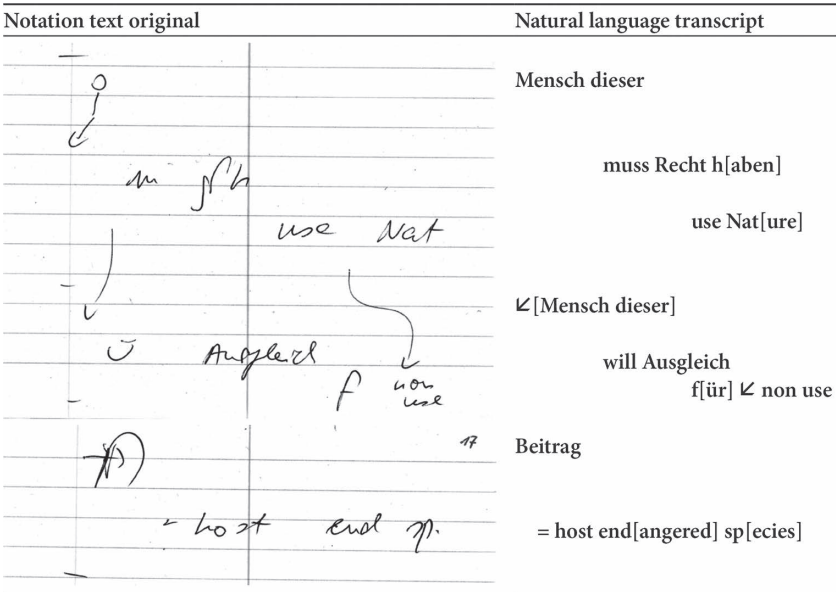 Notation text original Natural language transcript
Mensch dieser
m h muss Recht h[aben]
use Nat use Nat[ure]
↙[Mensch dieser]
Ausgleich will Ausgleich
f non use f[ür] ↙ non use
17 Beitrag
= host end sp. = host end[angered] sp[ecies]